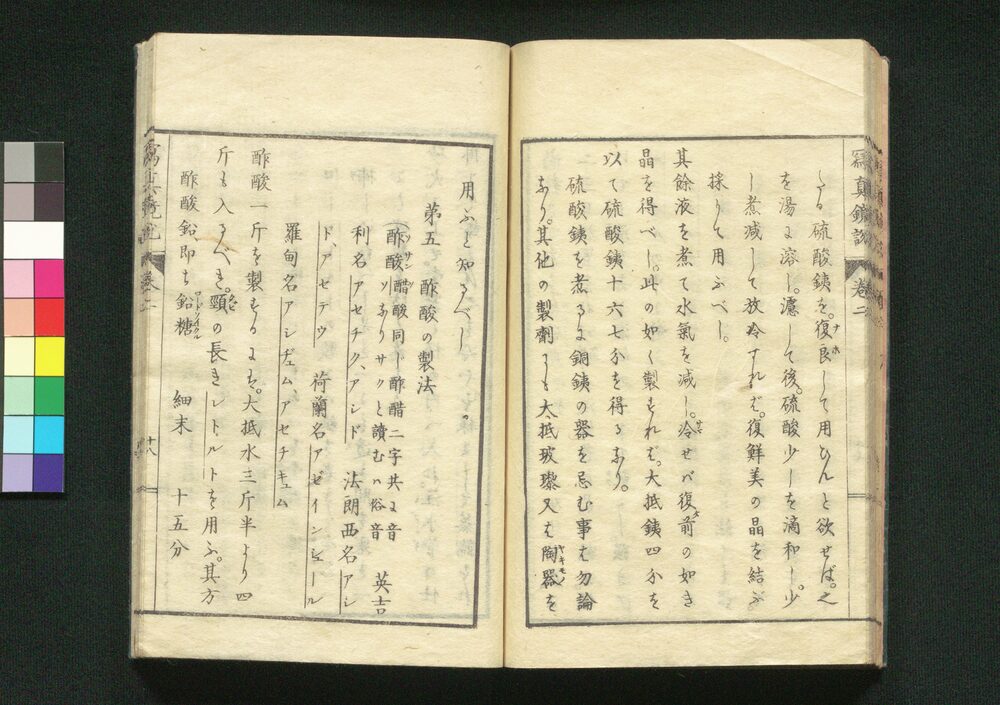 寫真鏡説 卷二
しる硫酸銕を。復良して用ひんと欲せば。之
を湯に溶し。濾して後。硫酸少しを滴和し。少
し煮減して放冷すれば。復鮮美の晶を結ぶ
採りて用ふべし。
其餘液を煮て水氣を減し。冷せば復前の如き
晶を得べし。此の如く製すれば。大抵銕四分を
以て硫酸銕十六七分を得るなり。
硫酸銕を煮るに銅銕の器を忌む事は勿論
なり。其他の製劑にも大抵玻瓈又は陶器を
用ふと知るべし。
第五 酢酸の製法
酢酸 醋酸同じ酢醋二字共に音
ソなりサクと讀むハ俗音 英吉
利名アセチク、アシド 法朗西名アシ
ド、アセテウ 荷蘭名アゼインシュール
羅甸名アシヂュム、アセチキュム
酢酸一斤を製するには。大抵水三斤半より四
斤も入るべき。頸の長きレトルトを用ふ。其方
酢酸鉛即ち鉛糖 細末 十五分
寫真鏡説 卷二 十八